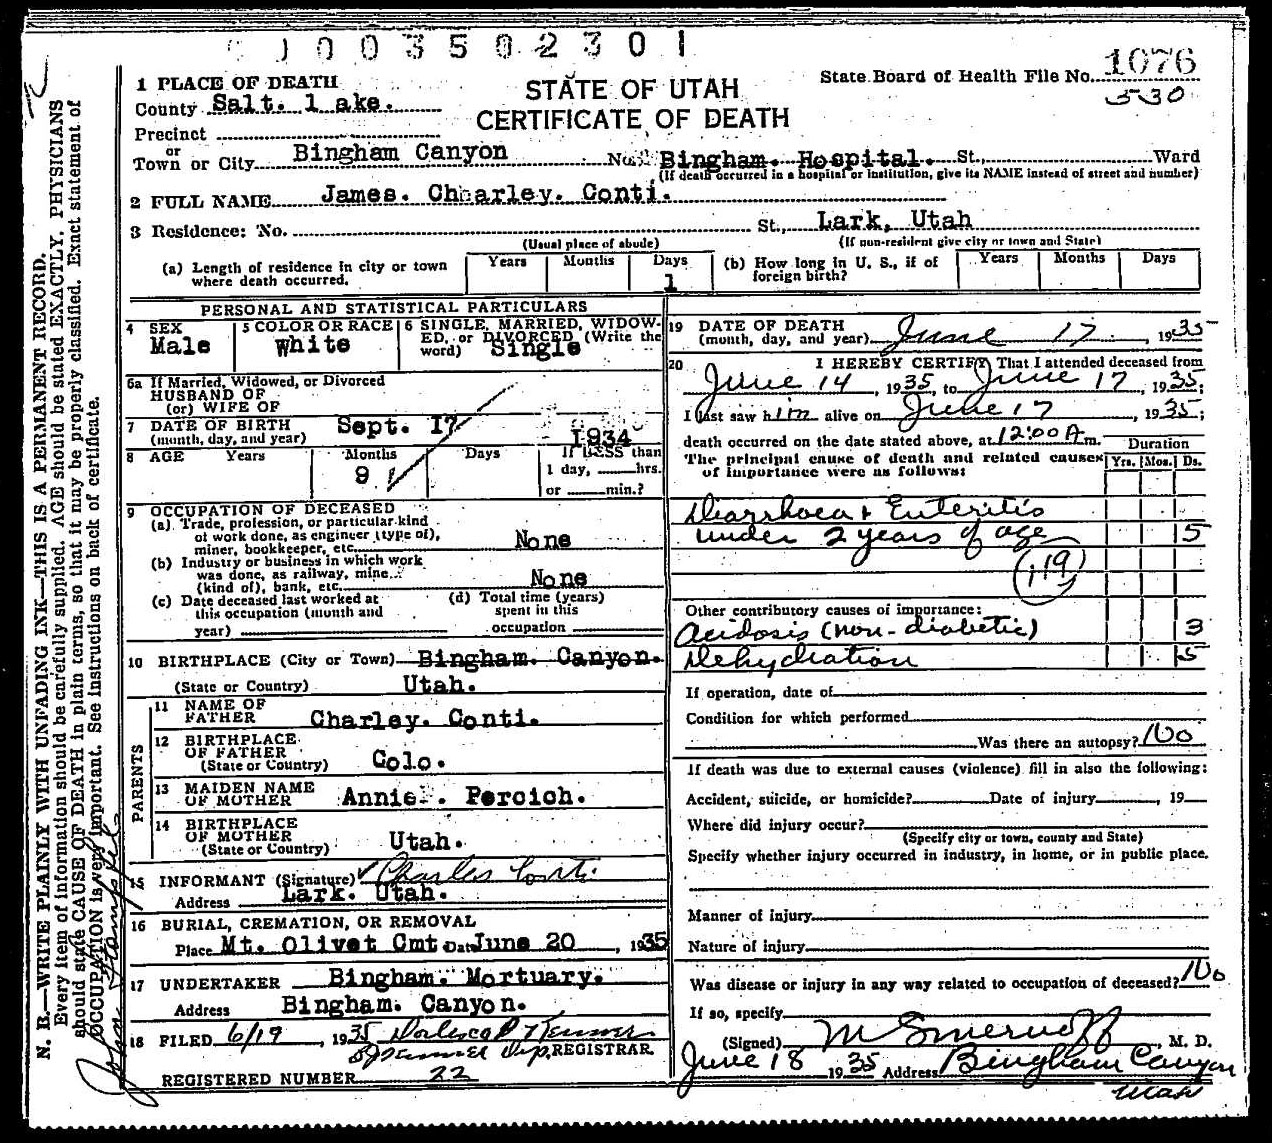 1003502301
1 PLACE OF DEATH
STATE OF UTAH
CERTIFICATE OF DEATH
State Board of Health File No. 1076
530
County Salt. l ake.
Precinct
or
Town or City Bingham Canyon No. Bingham. Hospital. St., Ward
(If death occurred in a hospital or institution, give its NAME instead of street and number)
2 FULL NAME James. Charley. Conti.
3 Residence: No. St., Lark, Utah
(Usual place of abode) (If non-resident give city or town and State)
(a) Length of residence in city or town where death occurred. Years Months Days 1
(b) How long in U. S., if of foreign birth? Years Months Days
PERSONAL AND STATISTICAL PARTICULARS
4 SEX Male
5 COLOR OR RACE White
6 SINGLE, MARRIED, WIDOWED, or DIVORCED (Write the word) Single
6a If Married, Widowed, or Divorced
HUSBAND OF
(or) WIFE OF
7 DATE OF BIRTH
(month, day, and year) Sept. 17 1934
8 AGE Years Months 9 Days If LESS than
1 day, hrs.
or min.?
9 OCCUPATION OF DECEASED
(a) Trade, profession, or particular kind
of work done, as engineer (type of),
miner, bookkeeper, etc. None
(b) Industry or business in which work
was done, as railway, mine
(kind of), bank, etc. None
(c) Date deceased last worked at
this occupation (month and
year)
(d) Total time (years)
spent in this
occupation
10 BIRTHPLACE (City or Town) Bingham. Canyon.
(State or Country) Utah.
PARENTS
11 NAME OF
FATHER Charley. Conti.
12 BIRTHPLACE
OF FATHER
(State or Country) Colo.
13 MAIDEN NAME
OF MOTHER Annie. Percich.
14 BIRTHPLACE
OF MOTHER
(State or Country) Utah.
15 INFORMANT (Signature) Charles Conti
Address Lark. Utah.
16 BURIAL, CREMATION, OR REMOVAL
Place Mt. Olivet Cmt. Date June 20, 1935
17 UNDERTAKER Bingham. Mortuary.
Address Bingham. Canyon.
18 FILED 6/19, 1935
REGISTRAR.
REGISTERED NUMBER 22
19 DATE OF DEATH
(month, day, and year) June 17 1935
20 I HEREBY CERTIFY, That I attended deceased from
June 14, 1935, to June 17, 1935;
I last saw him alive on June 17, 1935;
death occurred on the date stated above, at 12:00 A m.
The principal cause of death and related causes
of importance were as follows:
Duration
Yrs. Mos. Ds.
Diarrhoea & Enteritis
under 2 years of age 5
(119)
Other contributory causes of importance:
Acidosis (non-diabetic) 3
Dehydration 5
If operation, date of
Condition for which performed
Was there an autopsy? No
If death was due to external causes (violence) fill in also the following:
Accident, suicide, or homicide? Date of injury , 19
Where did injury occur?
(Specify city or town, county and State)
Specify whether injury occurred in industry, in home, or in public place.
Manner of injury
Nature of injury
Was disease or injury in any way related to occupation of deceased? No
If so, specify
(Signed) M. D.
June 18 1935 Address Bingham Canyon
Utah
N. B.—WRITE PLAINLY WITH UNFADING INK—THIS IS A PERMANENT RECORD.
Every item of information should be carefully supplied. AGE should be stated EXACTLY. PHYSICIANS
should state CAUSE OF DEATH in plain terms, so that it may be properly classified. Exact statement of
OCCUPATION is very important. See instructions on back of certificate.